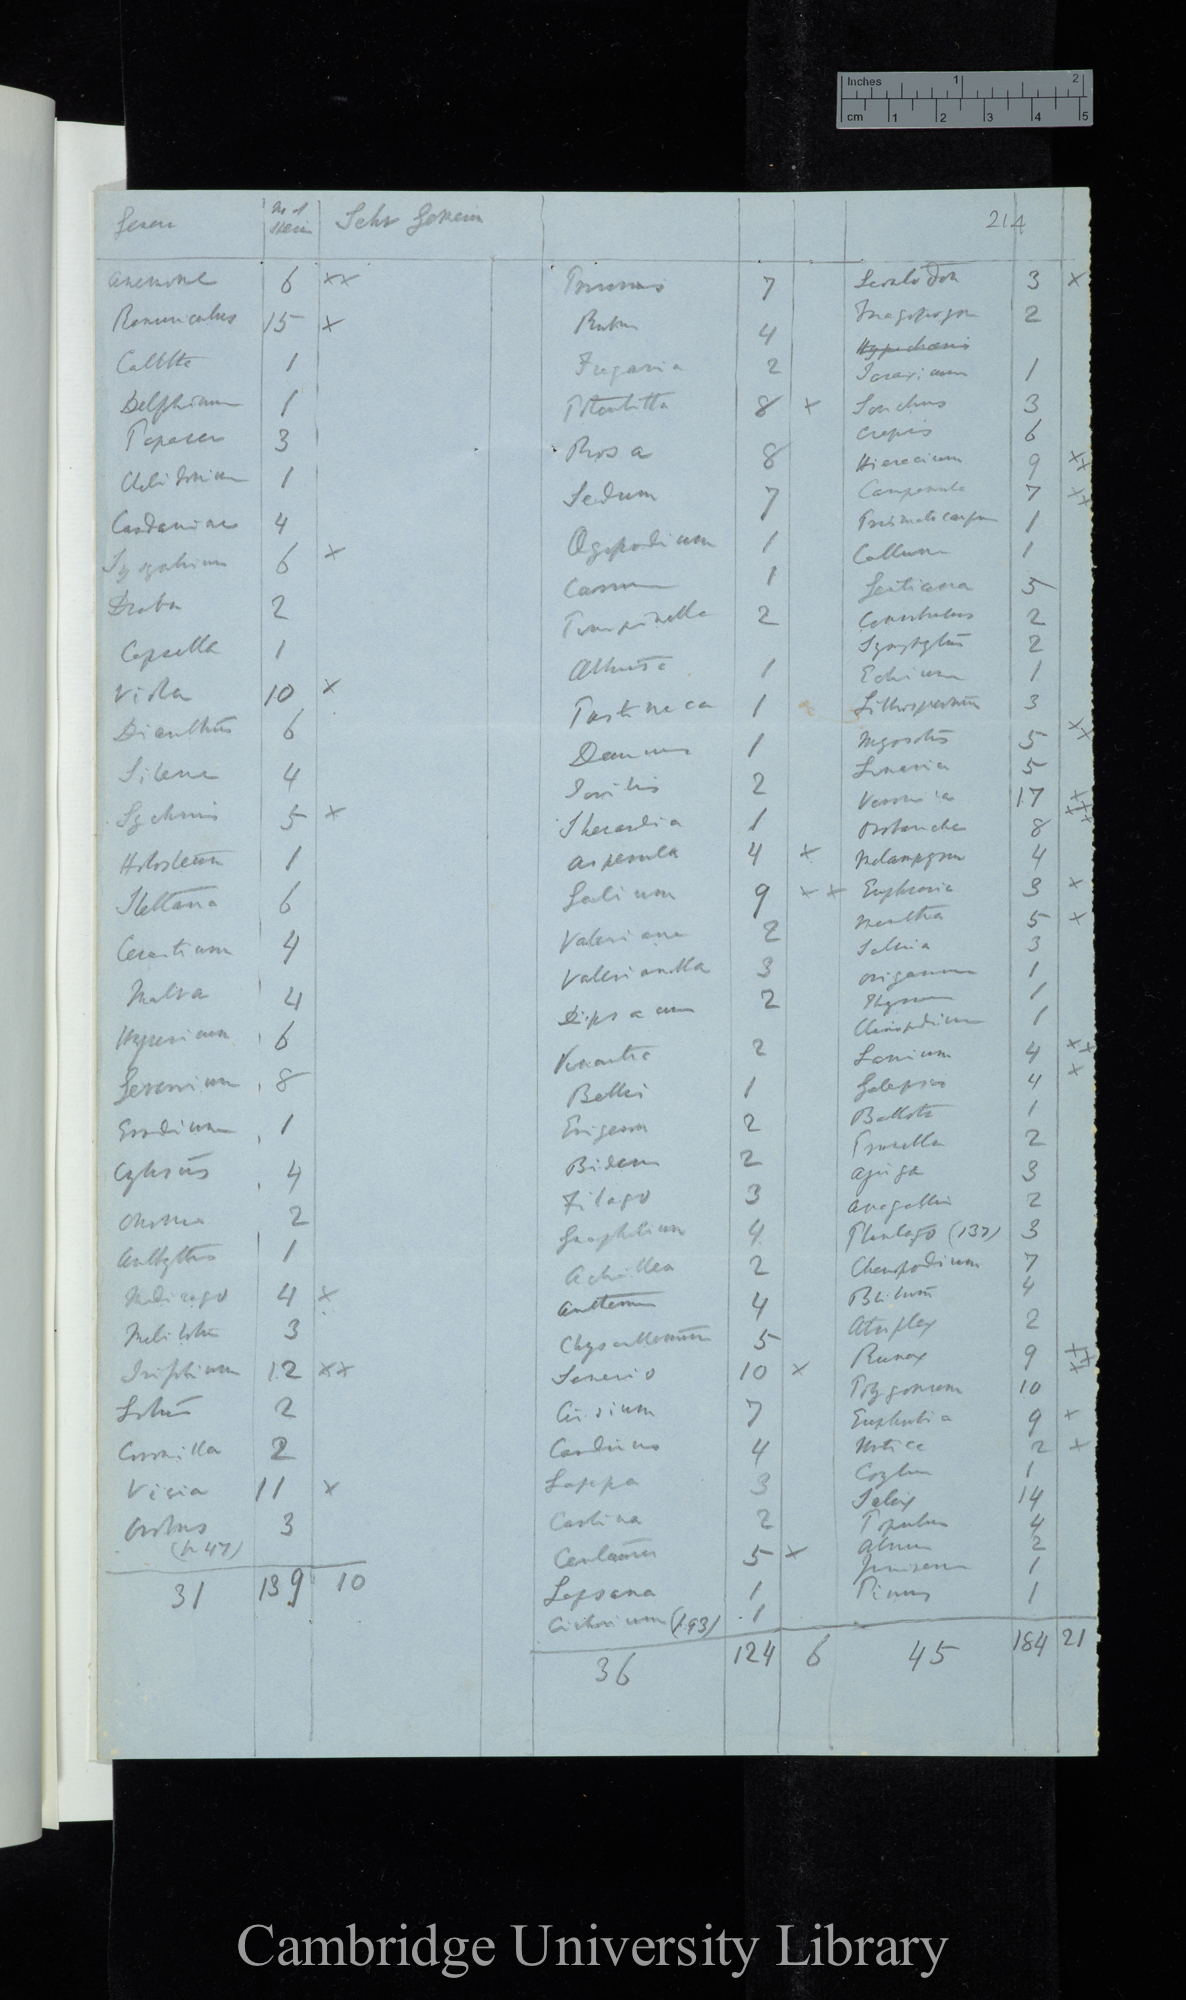 Inches 1 2
cm 1 2 3 4 5
214
Genera No of Species Sub Genera
Anemone 6 xx
Ranunculus 15 x
Caltha 1
Delphinium 1
Papaver 3
Chelidonium 1
Cardamine 4
Sysymbrium 6 x
Draba 2
Capsella 1
Viola 10 x
Dianthus 6
Silene 4
Lychnis 5 x
Holosteum 1
Stellaria 6
Cerastium 4
Malva 4
Hypericum 6
Geranium 8
Erodium 1
Cytisus 4
Ononis 2
Anthyllis 1
Medicago 4 x
Melilotus 3
Trifolium 12 xx
Lotus 2
Coronilla 2
Vicia 11 x
Orobus 3
(to 47)
31 139 10
Prunus 7
Rubus 4
Fragaria 2
Potentilla 8 x
Rosa 8
Sedum 7
Ægopodium 1
Carum 1
Pimpinella 2
Æthusa 1
Pastinaca 1
Daucus 1
Torilis 2
Sherardia 1
Asperula 4 x
Galium 9 x x
Valeriana 2
Valerianella 3
Dipsacum 2
Knautia 2
Bellis 1
Erigeron 2
Bidens 2
Filago 3
Gnaphalium 4
Achillea 2
Anthemis 4
Chrysanthemum 5
Senecio 10 x
Cirsium 7
Carduus 4
Lappa 3
Carlina 2
Centaurea 5 x
Lapsana 1
Cichorium (193) 1
36 124 6
Leontodon 3 x
Tragopogon 2
Hypochaeris
Taraxicum 1
Sonchus 3
Crepis 6
Hieracium 9 xx
Campanula 7 xx
Prismatocarpus 1
Calluna 1
Gentiana 5
Convolvulus 2
Symphytum 2
Echium 1
Lithospermum 3
Myosotis 5 xx
Linaria 5
Veronica 17 xxxx
Orobanche 8
Melampyrum 4
Euphrasia 3 x
Mentha 5 x
Salvia 3
Origanum 1
Thymus 1
Clinopodium 1
Lamium 4 xx
Galeopsis 4 x
Ballota 1
Prunella 2
Ajuga 3
Anagallis 2
Plantago (137) 3
Chenopodium 7
Blitum 4
Atriplex 2
Rumex 9 xxxx
Polygonum 10
Euphorbia 9 x
Urtica 2 x
Corylus 1
Salix 14
Populus 4
Alnus 2
Juniperus 1
Pinus 1
45 184 21
Cambridge University Library